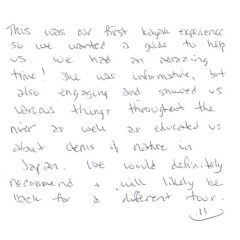 This was our first kayak experience
so we wanted a guide to help
us. We had an amazing
time! She was informative, but
also engaging and showed us
various things throughout the
river as well as educated us
about items of nature in
Japan. We would definitely
recommend + will likely be
back for a different tour.